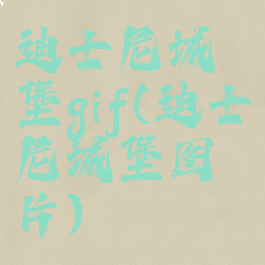 迪士尼城
堡gif(迪士
尼城堡图
片)